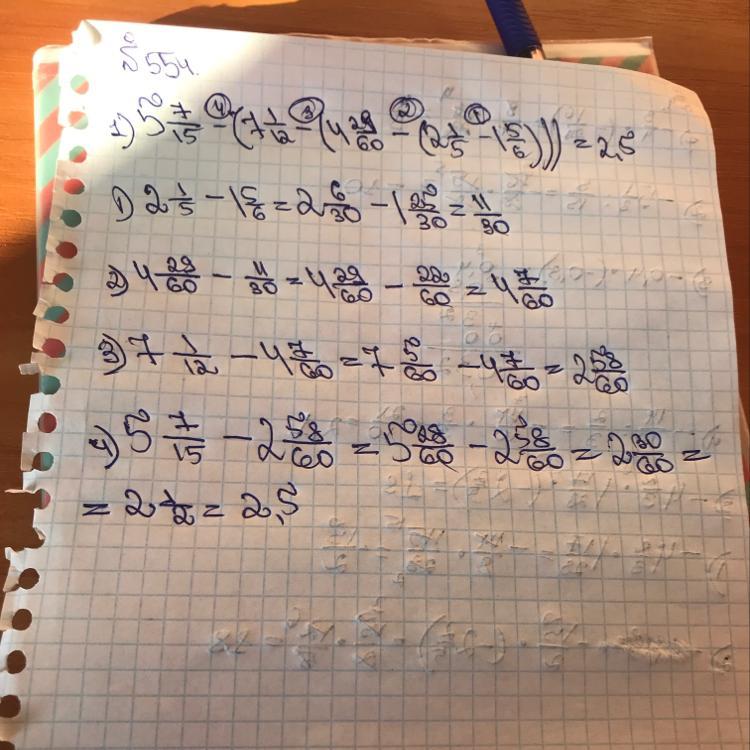 №554.
1) 5 7/15 - (7 1/12 - (4 29/60 - (2 1/5 - 1 5/6))) = 2,5
1) 2 1/5 - 1 5/6 = 2 6/30 - 1 25/30 = 11/30
2) 4 29/60 - 11/30 = 4 29/60 - 22/60 = 4 7/60
3) 7 1/12 - 4 7/60 = 7 5/60 - 4 7/60 = 2 58/60
4) 5 7/15 - 2 58/60 = 5 28/60 - 2 58/60 = 2 30/60 =
= 2 1/2 = 2,5